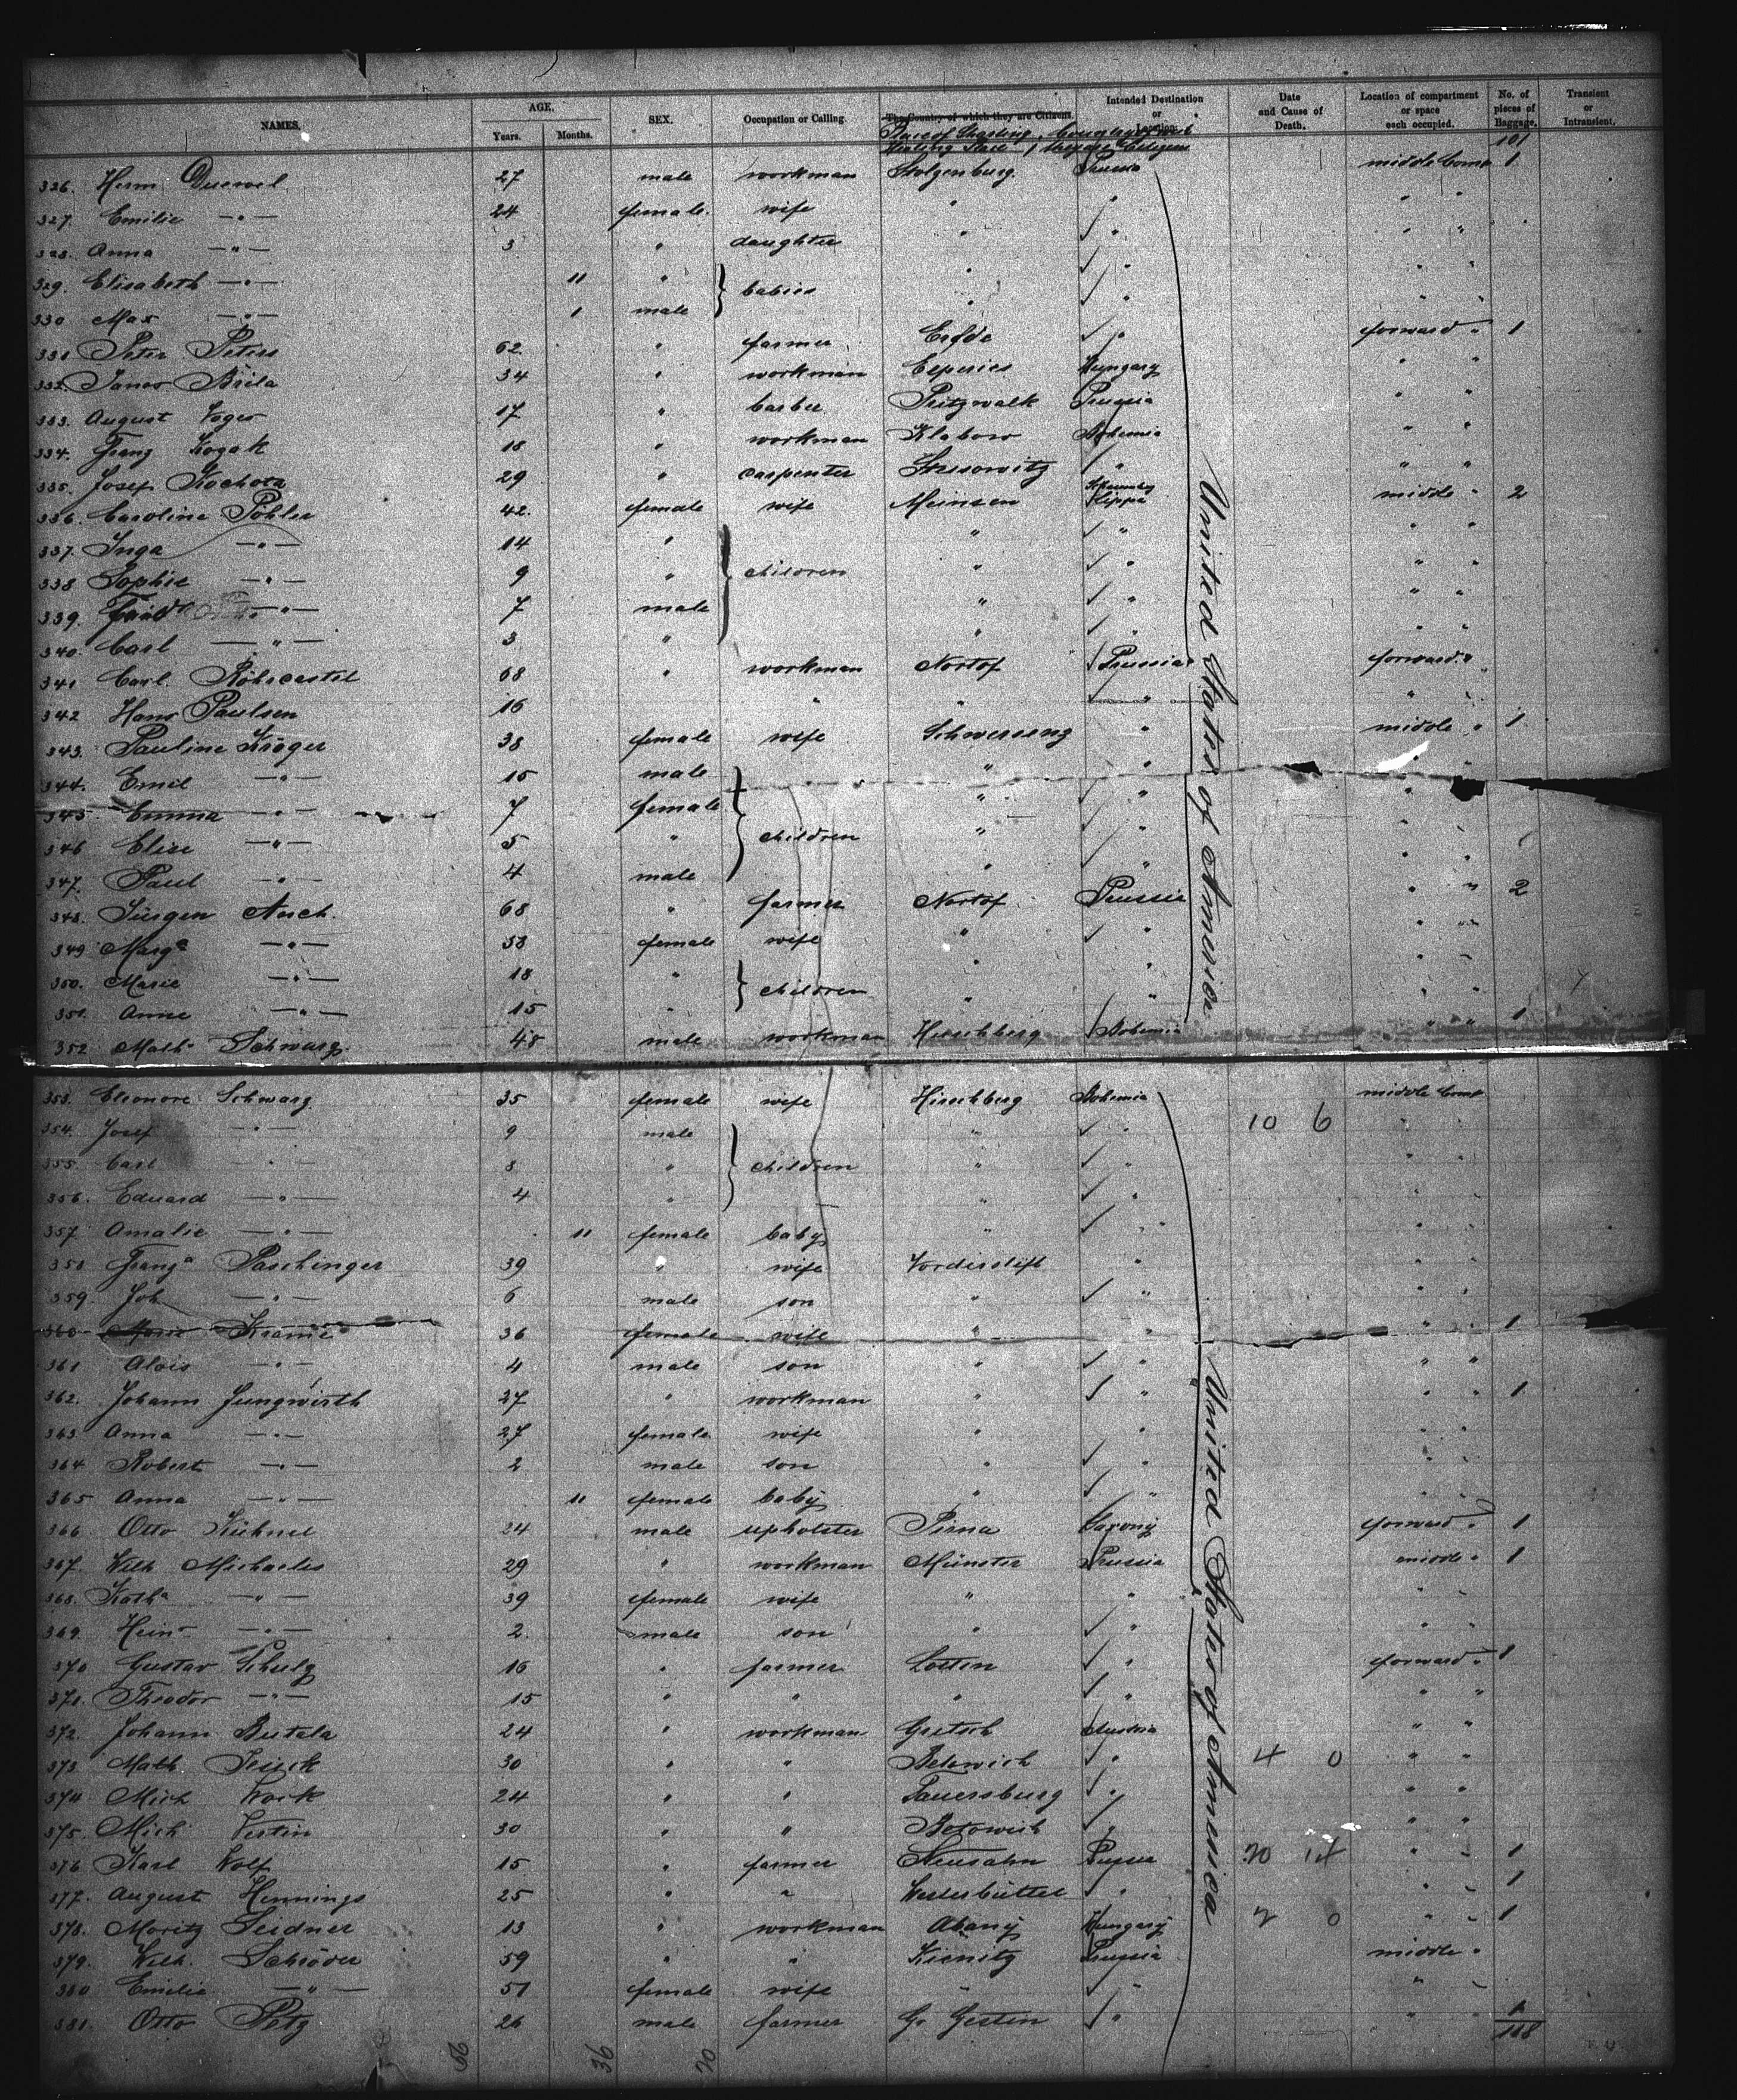 NAMES. AGE. Years. Months. SEX. Occupation or Calling. The Country of which they are Citizens. Intended Destination or Location. Date and Cause of Death. Location of compartment or space each occupied. No. of pieces of Baggage. Transient or Intransient.
Place of Starting Country of which
they are Citizens 101
326. Herm 27 male workman Stolzenburg Prussia middle Comp 1
327. Emilie —"— 24 female wife " " " "
328. Anna —"— 3 " daughter " " " "
329. Elisabeth —"— 11 " babies " " " "
330 Max —"— 1 male " " " "
331 Peter Peters 62. " farmer Erfde " forward " 1
332. Janos Brila 34 " workman Eperies Hungary " "
333. August Voger 17 " barber Pritzwalk Prussia " "
334. Franz Kozak 18 " workman Klabow Bohemia " "
335. Josef Kochota 29 " carpenter " " "
336. Caroline Pöhler 42. female wife Meinsen Schaumburg Lippe middle " 2
337. Inga —"— 14 " children " " " "
338 Sophie —"— 9 " " " " "
339. —"— 7 male " " " "
340. Carl —"— 3 " " " " "
341 Carl 68 " workman Nortof Prussia forward "
342 Hans Paulsen 16 " " " " "
343. Pauline Kröger 38 female wife Schwersenz " middle " 1
344. Emil —"— 15 male " " "
345 Emma —"— 7 female " " "
346 Elise —"— 5 " children " " "
347. Paul —"— 4 male " " "
348. Jürgen 68 " farmer Nortof Prussia " " 2
349 Marga —"— 58 female wife " " "
350. Marie —"— 18 " children " " "
351. Anne —"— 15 " " " "
352 Math Schwarz 48 male workman Hirschberg Bohemia " " 1
United States of America
353. Eleonore Schwarz 35 female wife Hirschberg Bohemia middle Comp
354. Josef —"— 9 male " " 10 6 "
355. Carl —"— 8 " children " " "
356. Eduard —"— 4 " " " "
357. Amalie —"— 11 female baby " " "
358 Franza Paschinger 39 " wife Vorderstift " "
359. Joh —"— 6 male son " " "
360 Marie Kramé 36 female wife " " " 1
361 Alois —"— 4 male son " " " "
362. Johann Jungwirth 27 " workman " " " 1
363 Anna —"— 27 female wife " " "
364 Robert —"— 2 male son " " "
365 Anna —"— 11 female baby " " "
366 Otto Kühnel 24 male upholster Pirna Saxony forward " 1
367. Wilh Michaelis 29 " workman Münster Prussia middle " 1
368. Katha —"— 39 female wife " " "
369. Heinr —"— 2. male son " " "
370 Gustav Schulz 16 " farmer " forward " 1
371. Theodor —"— 15 " " " " " "
372. Johann Butala 24 " workman Gretsch Austria " "
373 Math 30 " " " 4 0 " "
374 Mich 24 " " " " "
375. Mich Vertin 30 " " " " "
376 Karl Wolf 15 " farmer Neusahn Prussia 20 14 " " 1
377. August Hennings 25 " " Westerbüttel " " " 1
378. Moritz 13 " workman Abany Hungary 2 0 " " 1
379. Wilh. Schröder 59 " " Kienitz Prussia middle "
380 Emilie —"— 51 female wife " " "
381. Otto Petz 26 male farmer " " " 1
United States of America
118